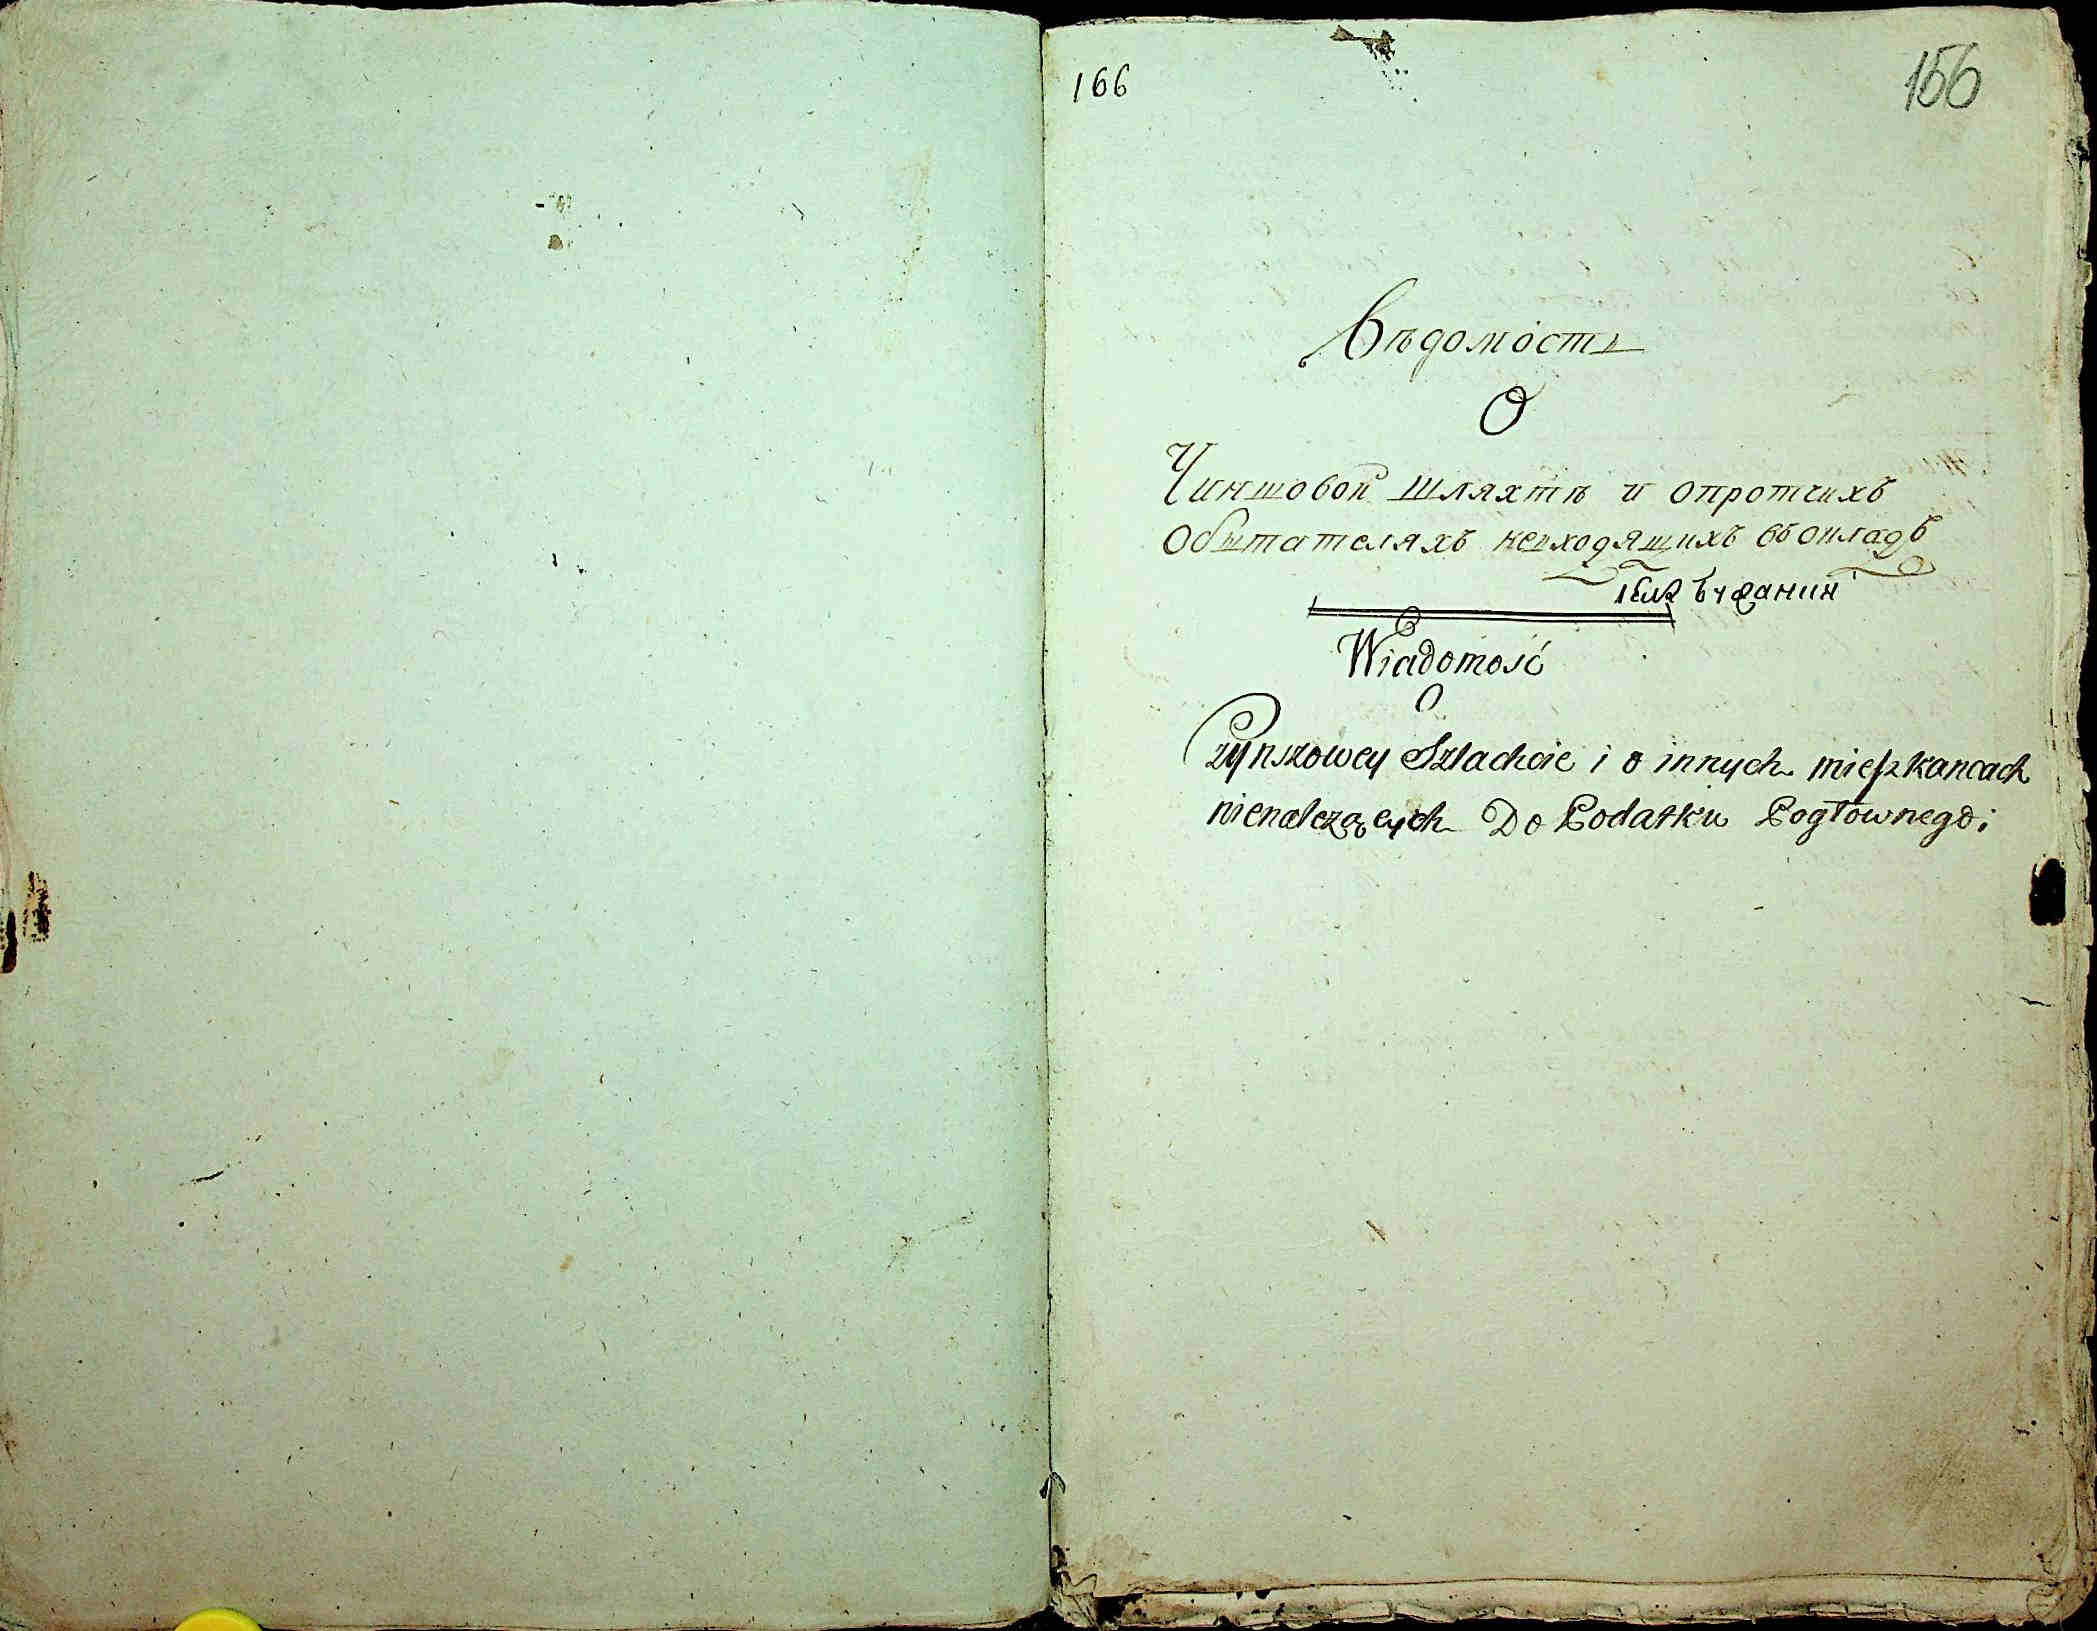 166
156
Вѣдомость
О
Чиншовой шляхтѣ и опротчихъ
Обытателяхъ невходящихъ въокладъ
Wiadomość
O
Czynszowey Szlachcie i o innych mieszkancach
nienależących Do Podatku Pogłownego;